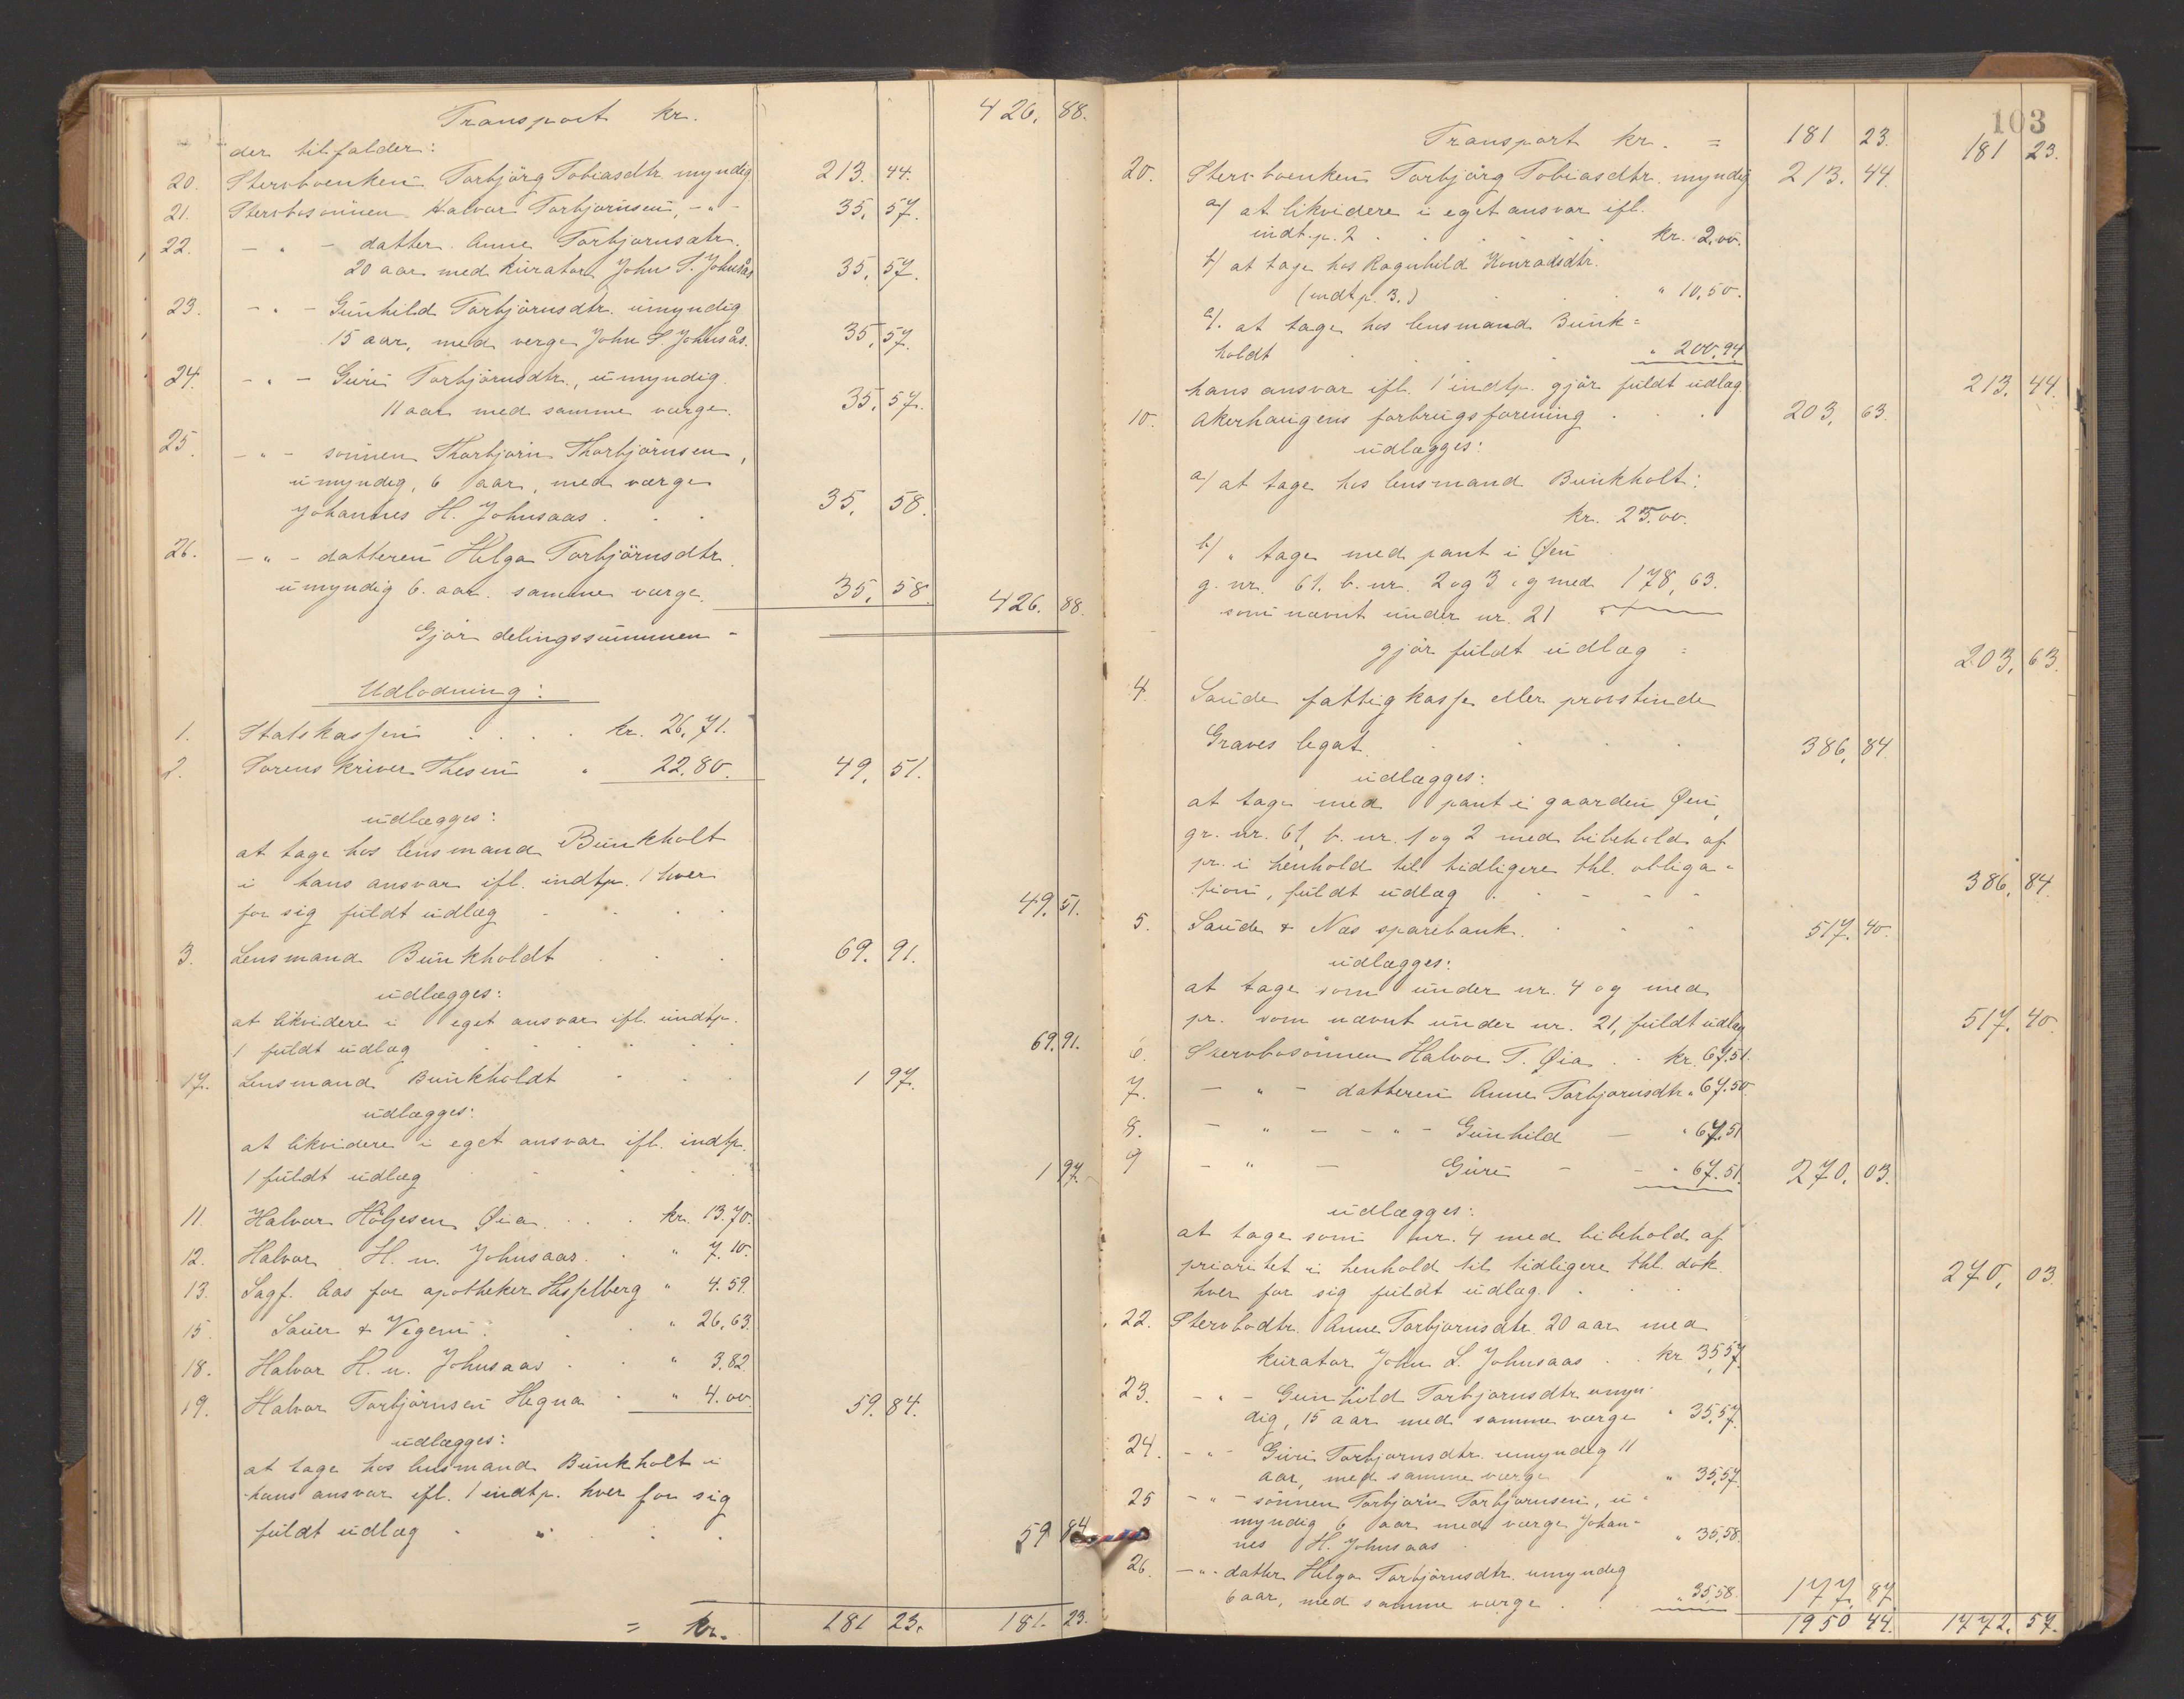 Transport kr. 426. 88.
der tilfalder:
20. Stervboenken Torbjörg Tobiasdtr myndig 213. 44.
21. Stervbosönnen Halvor Torbjörnsen, -"- 35. 57.
22. -"- datter Anne Torbjörnsdtr.
20 aar med kurator John S. Johnsås 35. 57.
23. -"- Gunhild Torbjörnsdtr. umyndig
15 aar, med verge John S. Johnsås. 35. 57.
24. -"- Guri Torbjörnsdtr., umyndig
11 aar med samme verge. 35. 57.
25. -"- sönnen Thorbjörn Thorbjörnsen,
umyndig, 6 aar, med verge
Johannes H. Johnsaas . . . 35. 58.
26. -"- datteren Helga Torbjörnsdtr.
umyndig 6. aar. samme verge. 35. 58. 426. 88.
Gjör delingssummen -
Udlodning:
1. Statskassen . . . . kr. 26,71.
2. Sorenskriver Thesen " 22.80. 49. 51.
udlægges:
at tage hos lensmand Bunkholt
i hans ansvar ifl. indtp. 1 hver
for sig fuldt udlæg - - - . 49. 51.
3. Lensmand Bunkholdt . . . 69. 91.
udlægges:
at likvidere i eget ansvar ifl. indtp.
1 fuldt udlæg . . . . . 69. 91.
17. Lensmand Bunkholdt - . . 1 97.
udlægges:
at likvidere i eget ansvar ifl. indtp.
1 fuldt udlæg - - - - 1 97.
11. Halvor Höljesen Øia . . . kr. 13.70.
12. Halvor H. n. Johnsaas. . " 7.10.
13. Sagf. Aas for apotheker Hesselberg " 4.59.
15. Sauer & Vegem . . " 26,63.
18. Halvor H. n. Johnsaas . . " 3.82.
19. Halvor Torbjörnsen Hegna . " 4.00. 59. 84.
udlægges:
at tage hos lensmand Bunkholt i
hans ansvar ifl. 1 indtp. hver for sig
fuldt udlæg . . . . 59 84
= kr. 181 23. 181. 23.
103
Transport kr. = 181 23. 181 23.
20. Stervboenken Torbjörg Tobiasdtr. myndig 213. 44.
a/ at likvidere i eget ansvar ifl.
indt.p. 2 . . . . . kr. 2,00.
b/ at tage hos Ragnhild Konradsdtr.
(indtp. 3.) . . . " 10,50.
c/. at tage hos lensmand Bunk=
holdt . . . . " 200,94
hans ansvar ifl. 1 indtp. gjör fuldt udlæg 213. 44.
10. Akerhaugens forbrugsforening . . . 203. 63.
udlægges:
a/ at tage hos lensmand Bunkholt:
kr. 25.00.
b/ " tage med pant i Øen
g. nr. 61. b. nr. 2 og 3 og med 178,63.
som nævnt under nr. 21
gjör fuldt udlæg = 203. 63.
4. Saude fattigkasse eller provstinde
Graves legat . . . . 386. 84.
udlægges:
at tage med pant i gaarden Øen,
gr. nr. 61, b. nr. 1 og 2 med bibehold af
pr. i henhold til tidligere thl. obliga=
tion, fuldt udlæg . - - - 386. 84.
5. Saude & Nes sparebank. . . . 517. 40.
udlægges:
at tage som under nr. 4 og med
pr. som nævnt under nr. 21, fuldt udlæg 517. 40.
6. Stervbosönnen Halvor T. Øia . . kr. 67.51.
7. - " - datteren Anne Torbjörnsdtr " 67.50.
8. - " - - " - Gunhild - " 67.51
9 - " - Guri - - " 67.51. 270. 03.
udlægges:
at tage som nr. 4 med bibehold af
prioritet i henhold til tidligere thl. dok.
hver for sig fuldt udlæg . . . 270, 03.
22. Stervbodtr. Anne Torbjörnsdtr. 20 aar med
kurator John S. Johnsaas . . kr 35,57.
23. -"- Gunhild Torbjörnsdtr. umyn-
dig, 15 aar med samme værge " 35,57.
24. -"- Guri Torbjörnsdtr. umyndig 11
aar, med samme værge " 35,57.
25 -"- sönnen Torbjörn Torbjörnsen, u-
myndig 6 aar med værge Johan-
nes H. Johnsaas . " 35,58.
26. -"- datter Helga Torbjörnsdtr. umyndig
6 aar, med samme værge . . " 35,58. 177. 87.
1950 44. 1772. 57.